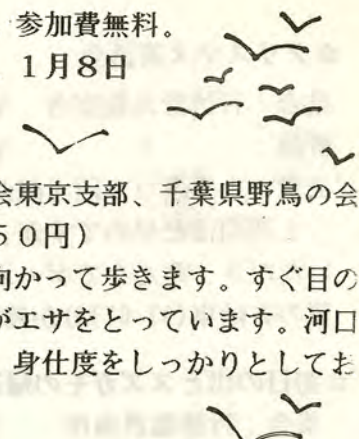 参加費無料。
1月8日
会東京支部、千葉県野鳥の会
50円)
向かって歩きます。すぐ目の
がエサをとっています。河口
身仕度をしっかりとしてお